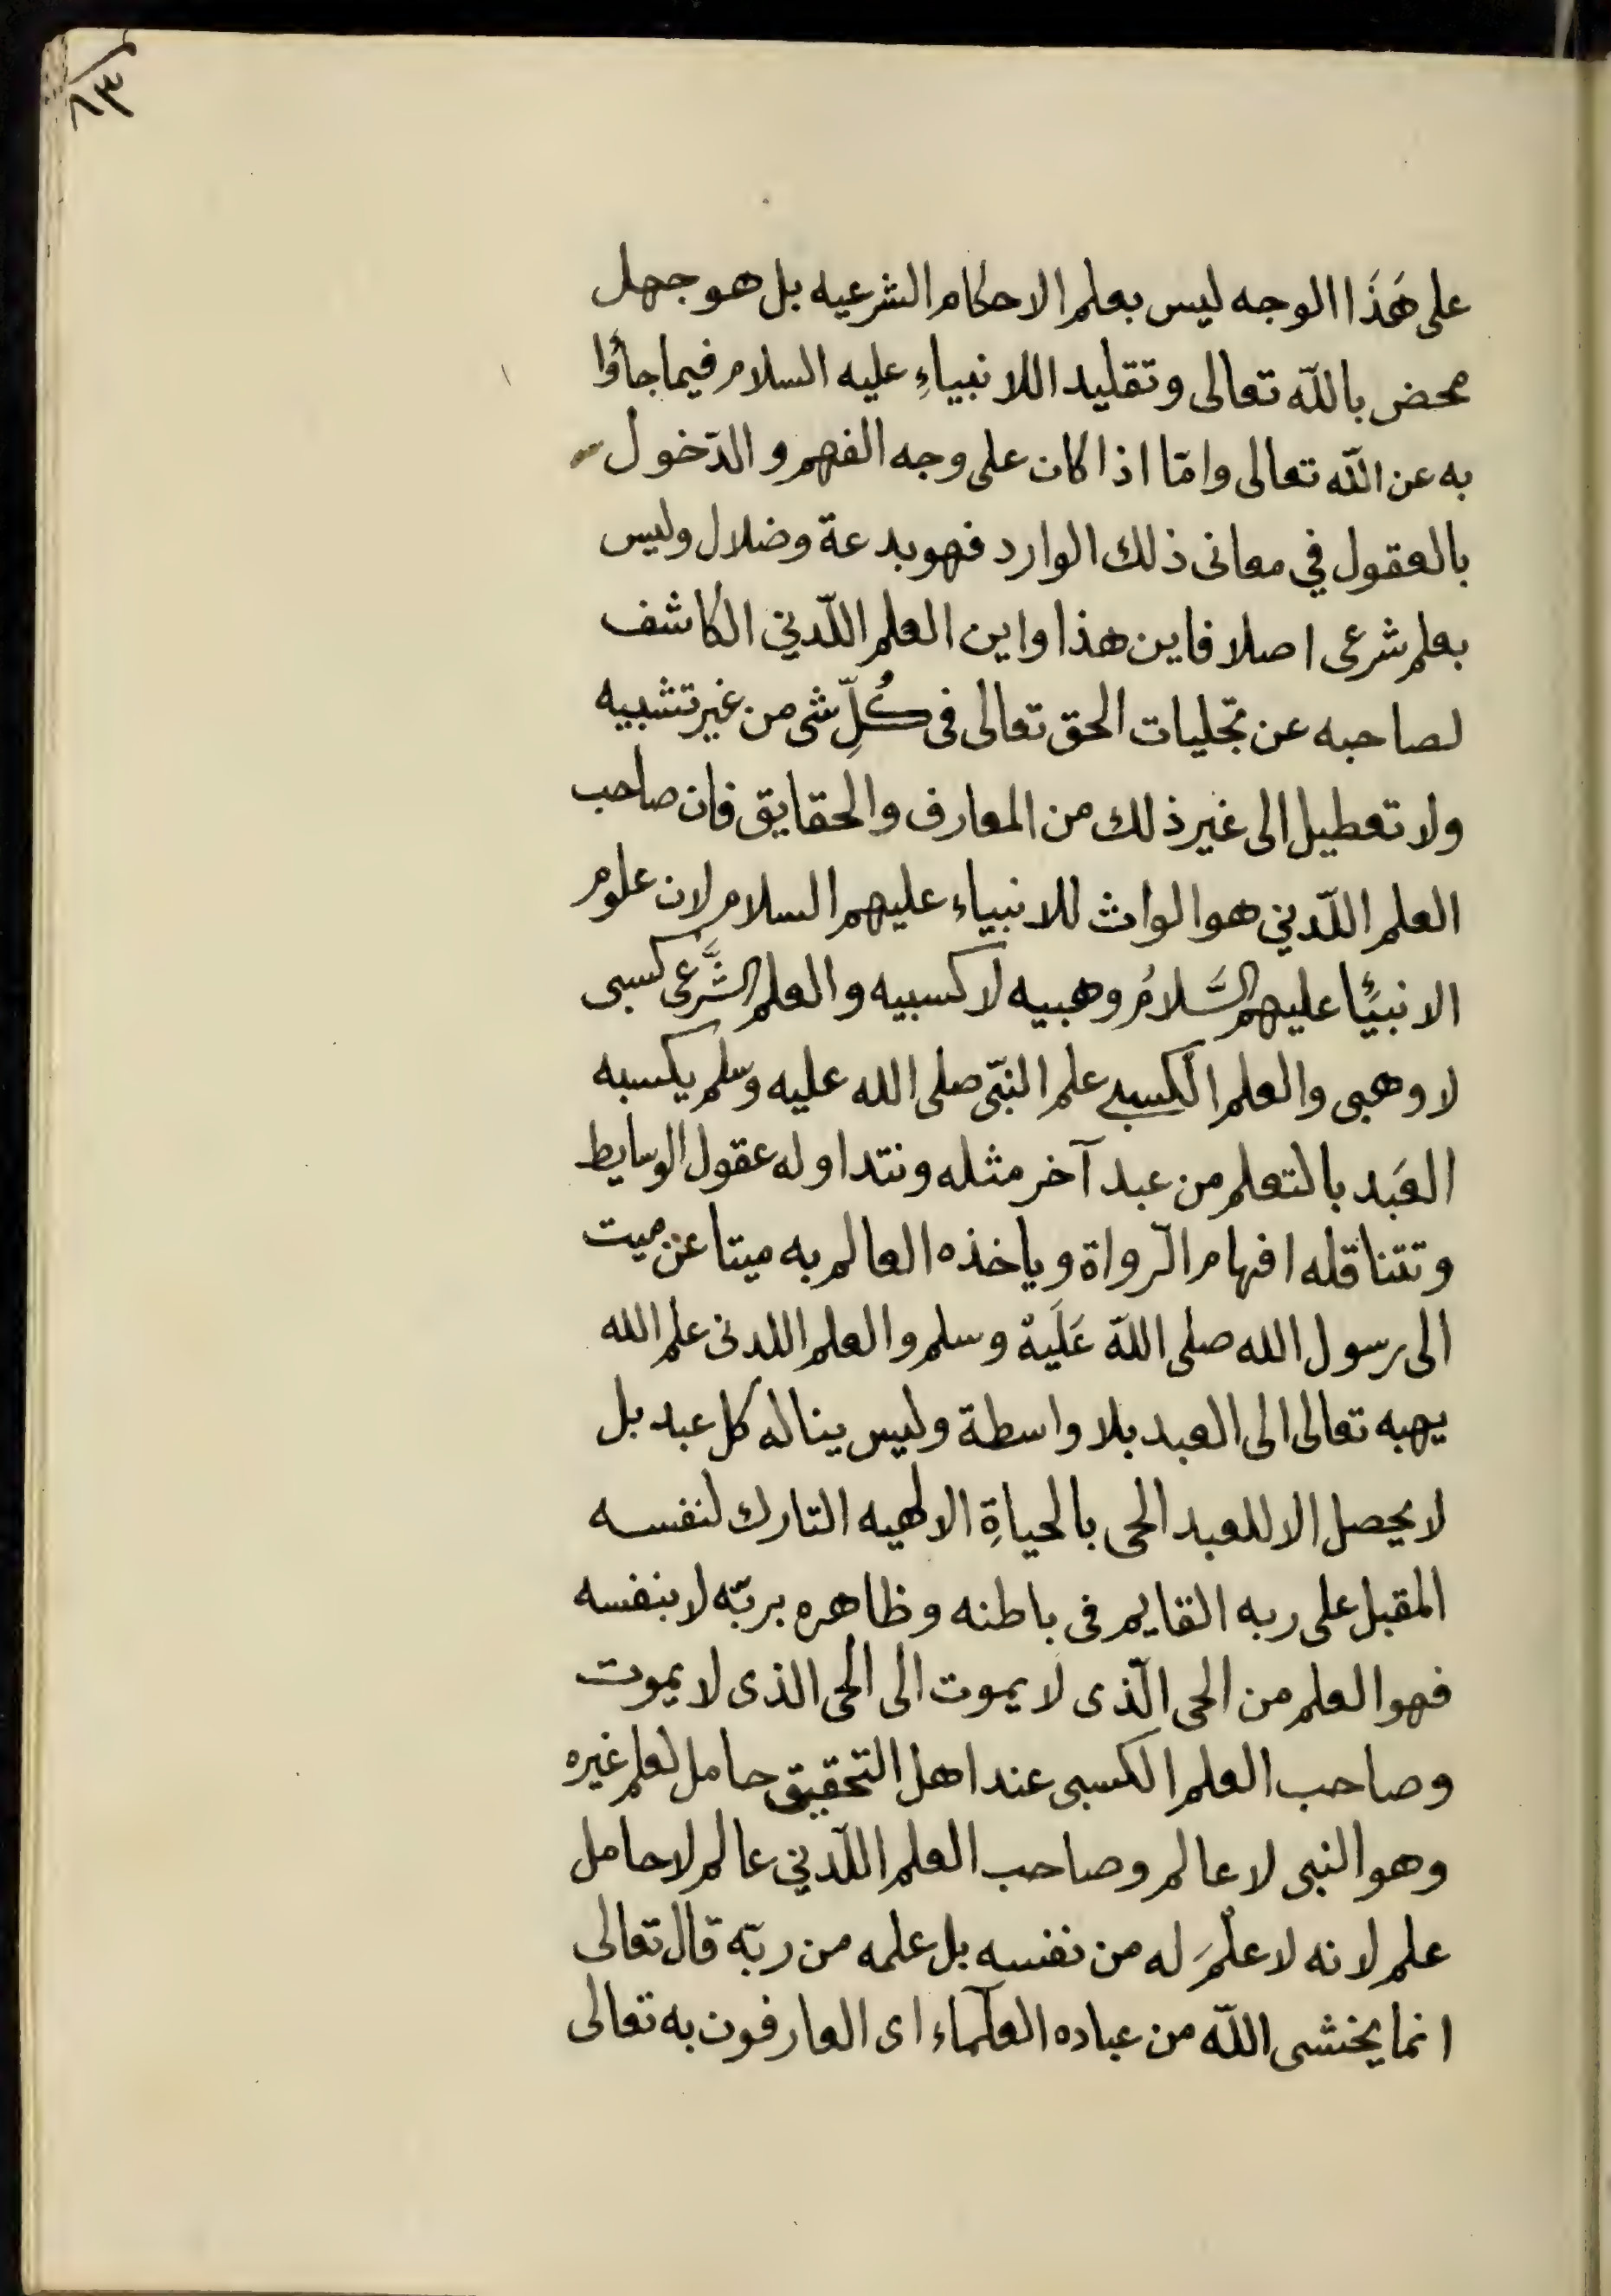 ٨٣
على هَذَا الوجه ليس بعلم الاحكام الشرعيه بل هو جهل
محض بالله تعالى وتقليد اللانبياءِ عليه السلام فيما جاؤا
به عن الله تعالى وامّا اذا كان على وجه الفهم و الدّخول
بالعقول في معانى ذلك الوارد فهو بدعة وضلال وليس
بعلم شرعى اصلا فاين هذا واين العلم اللّدني الكاشف
لصاحبه عن تجليات الحق تعالى فى كُلِّ شى من غير تشبيه
ولا تعطيل الى غير ذلك من المعارف والحقايق فان صاحب
العلم اللّدني هو الواث للانبياء عليهم السلام لان علوم
الانبيَّا عليهم السَّلامُ وهبيه لا كسبيه والعلم الشَّرعى كسبى
لا وهبى والعلم الكسبي علم النبّى صلى الله عليه وسلم يكسبه
العَبد بالتعلم من عبد آخر مثله ونتداوله عقول الوسايط
وتتناقله افهام الّرواة وياخذه العالم به ميتا عن ميت
الى رسول الله صلى اللهَ عَلَيهْ وسلم والعلم اللدنى علم الله
يهبه تعالى الى العبد بلا واسطة وليس يناله كل عبد بل
لا يحصل الا للعبد الحى بالحياةِ الالهيه التارك لنفسه
المقبل على ربه القايم فى باطنه وظاهره بربّه لا بنفسه
فهو العلم من الحى الّذى لا يموت الى الحى الذى لا يموت
وصاحب العلم الكسبى عند اهل التحقيق حامل لعلم غيره
وهو النبى لا عالم وصاحب العلم اللّدني عالم لا حامل
علم لانه لا علْمَ له من نفسه بل علمه من ربّه قال تعالى
انما يخشى اللّه من عباده العلمآء اى العارفون به تعالى